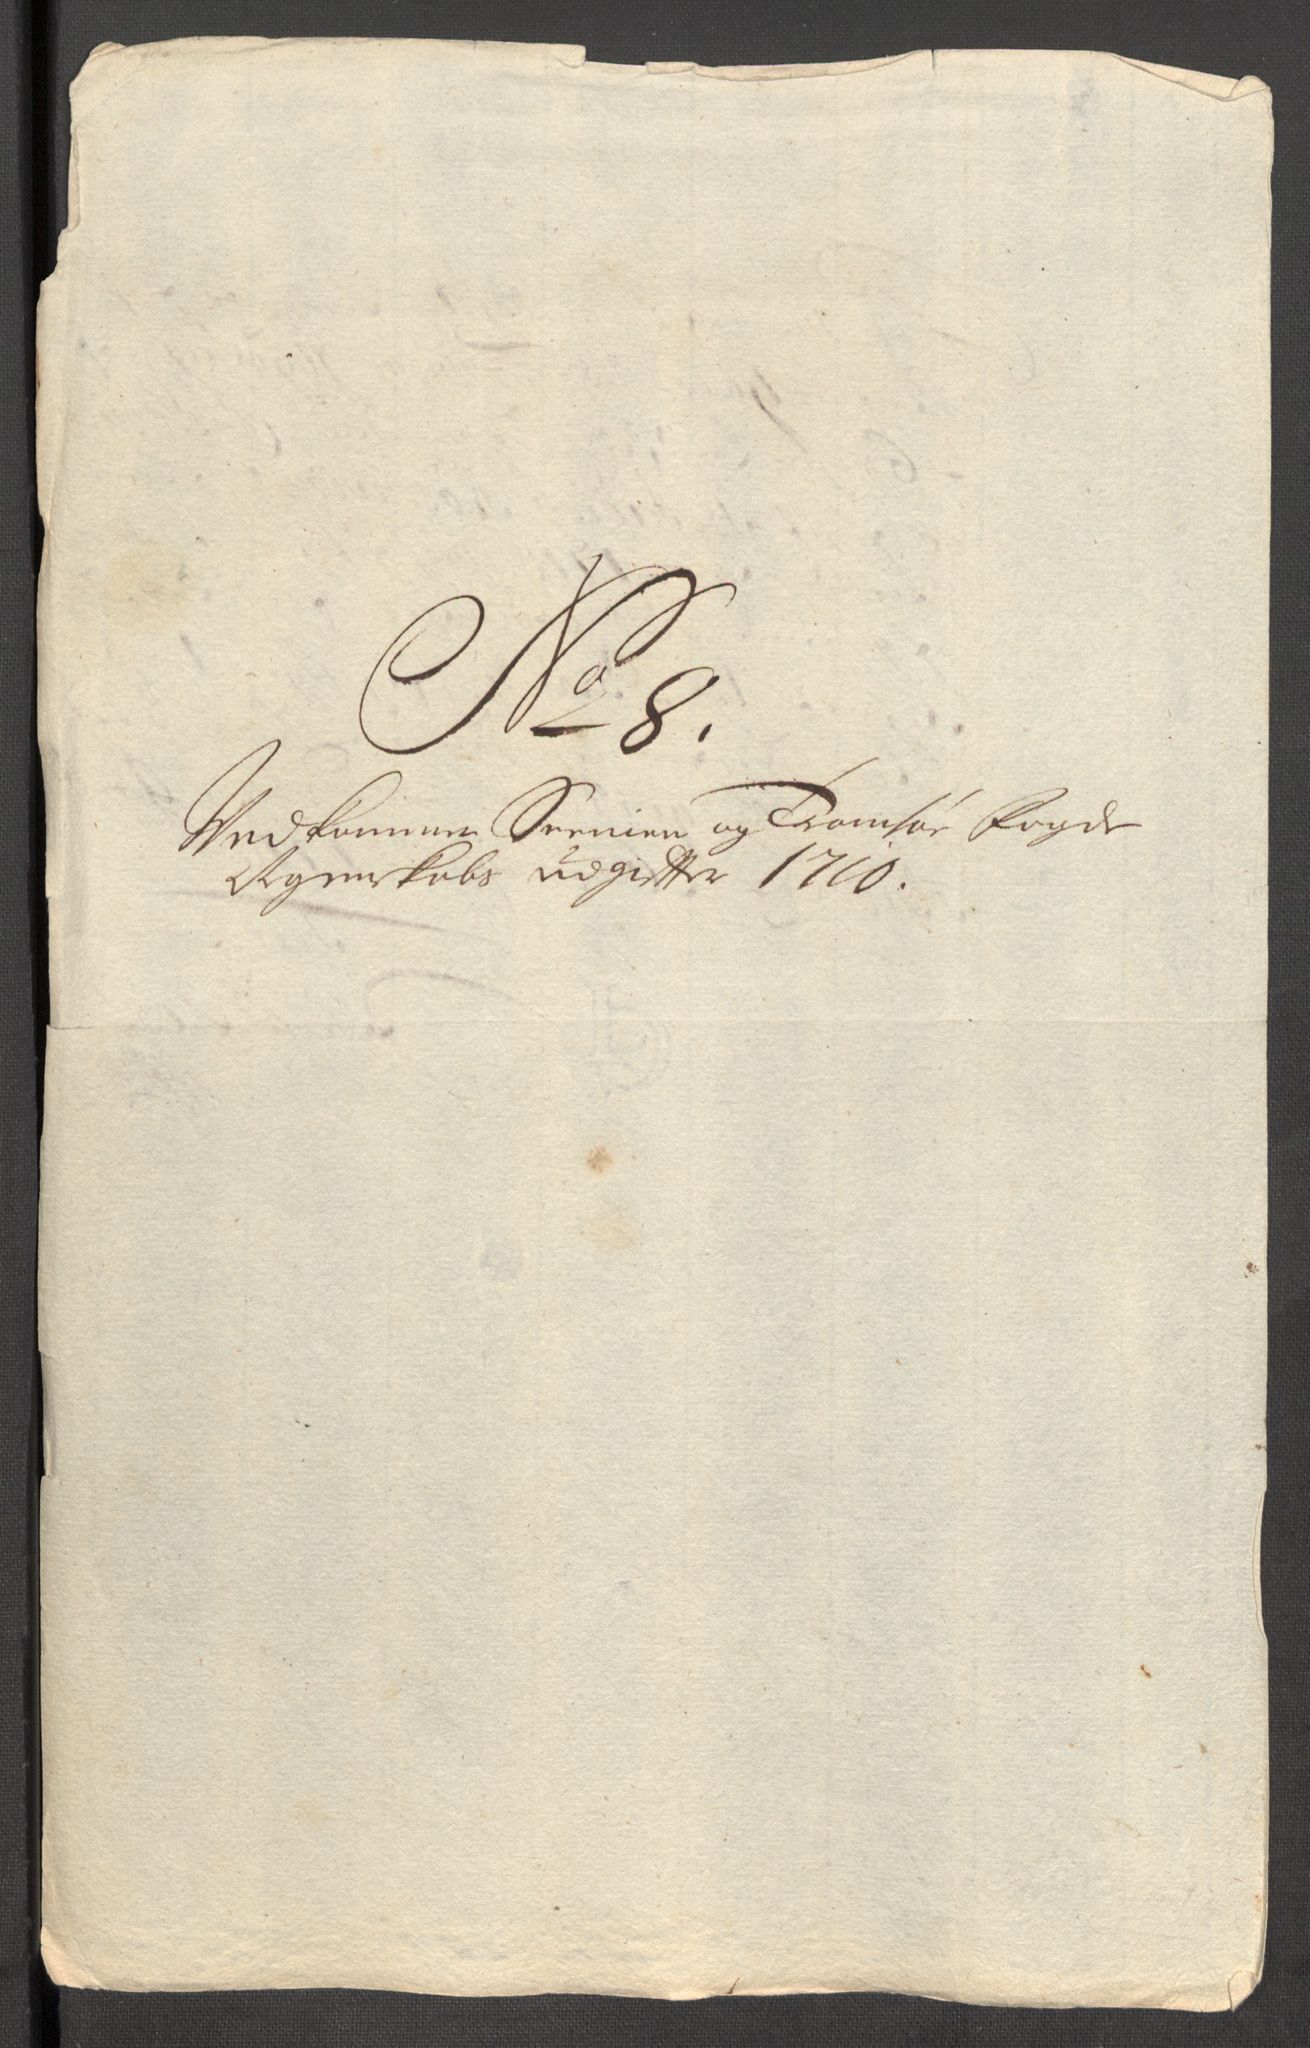 No 8.
Vedkommer Seenien og Tromsøe Fogde
Regenskabs udgifter 1710.